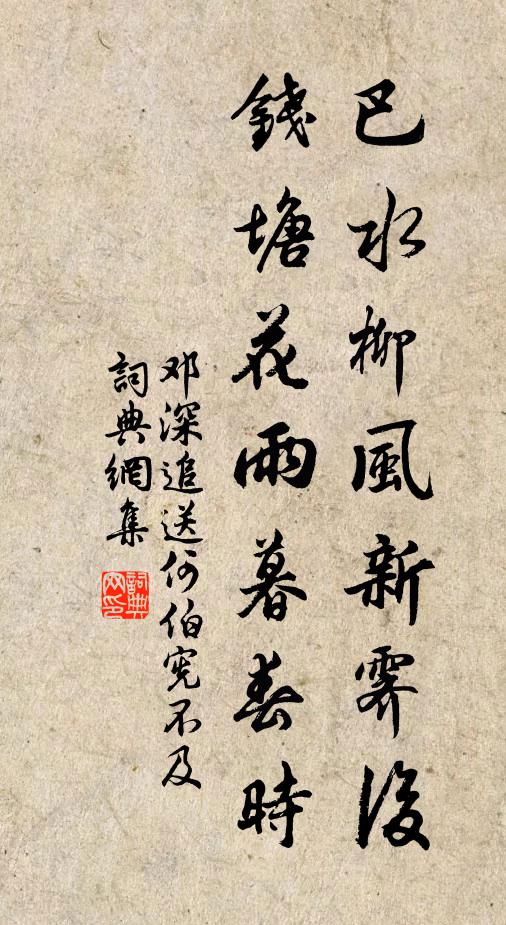 巴水柳風新霽後
錢塘花雨暮春時
邓深追送何伯宪不及
詞典網集
詞典网印